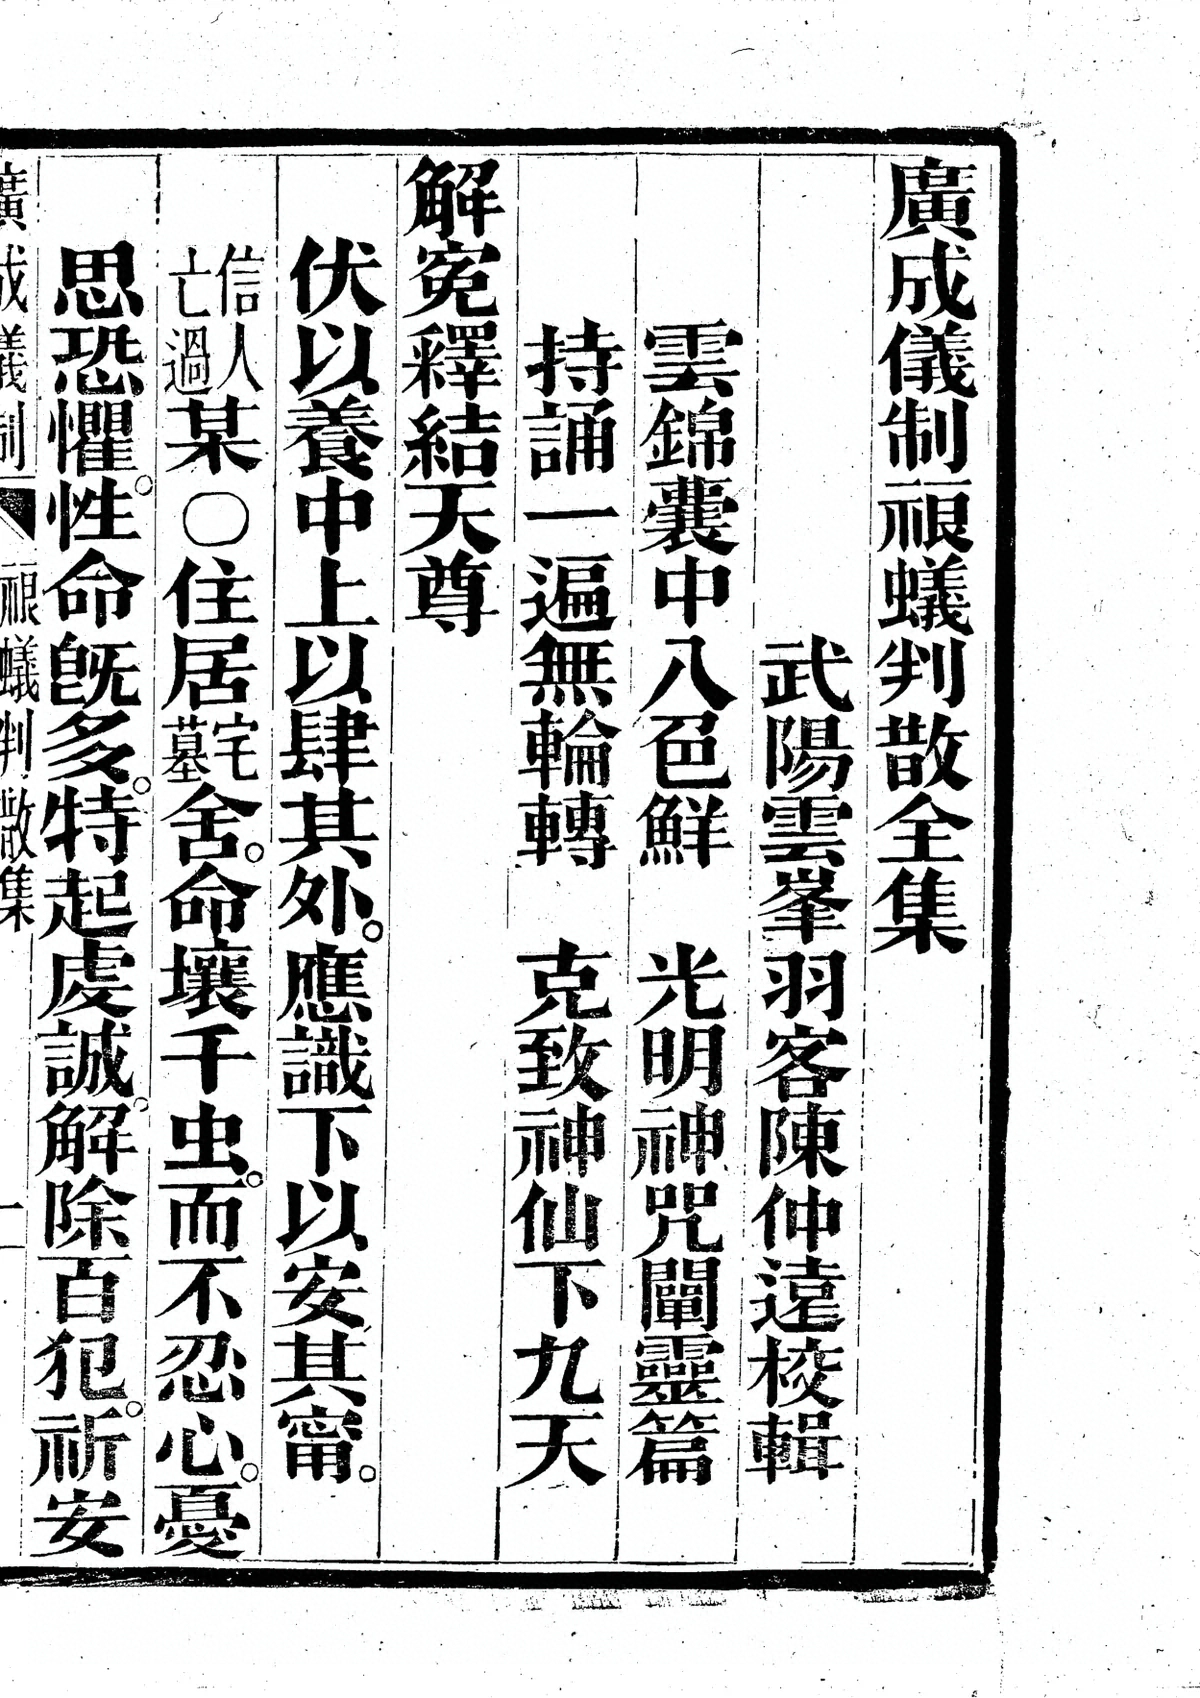 廣成儀制禳蟻判散全集
武陽雲峯羽客陳仲遠校輯
雲錦囊中八色鮮　光明神咒闡靈篇
持誦一遍無輪轉　克致神仙下九天
解寃釋結天尊
伏以養中上以肆其外。應識下以安其甯。
信人亡過某○住居宅墓舍。命壤千虫。而不忍心。憂
思恐懼。性命旣多。特起虔誠。解除百犯。祈安
廣成儀制　禳蟻判散集　一